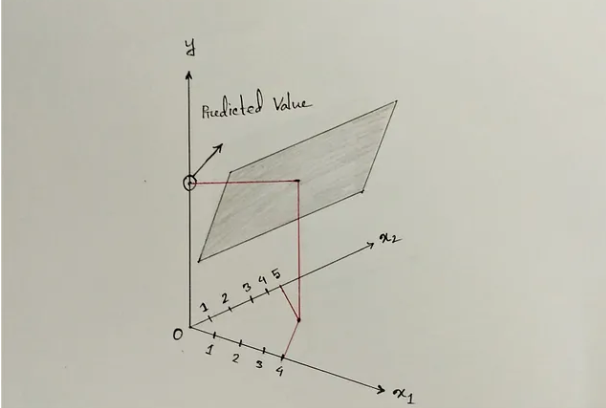 y
Predicted Value
x₂
1 2 3 4 5
O
1 2 3 4
x₁